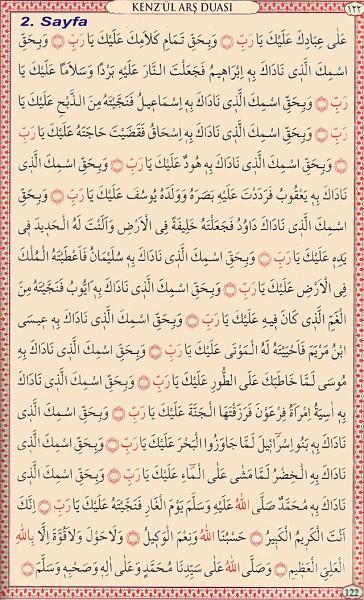 KENZ'ÜL ARŞ DUASI
١٢٢
2. Sayfa
عَلٰى عِبَادِكَ عَلَيْكَ يَا رَبِّ ۞ وَبِحَقِّ تَمَامِ كَلَامِكَ عَلَيْكَ يَا رَبِّ ۞ وَبِحَقِّ
اسْمِكَ الَّذ۪ي نَادَاكَ بِهِ اِبْرَاه۪يمُ فَجَعَلْتَ النَّارَ عَلَيْهِ بَرْدًا وَسَلَامًا عَلَيْكَ يَا
رَبِّ ۞ وَبِحَقِّ اسْمِكَ الَّذ۪ي نَادَاكَ بِهِ اِسْمَاع۪يلُ فَنَجَّيْتَهُ مِنَ الذَّبْحِ عَلَيْكَ يَا
رَبِّ ۞ وَبِحَقِّ اسْمِكَ الَّذ۪ي نَادَاكَ بِهِ اِسْحَاقُ فَقَضَيْتَ حَاجَتَهُ عَلَيْكَ يَا رَبِّ
۞ وَبِحَقِّ اسْمِكَ الَّذ۪ي نَادَاكَ بِهِ هُودٌ عَلَيْكَ يَا رَبِّ ۞ وَبِحَقِّ اسْمِكَ الَّذ۪ي
نَادَاكَ بِهِ يَعْقُوبُ فَرَدَدْتَ عَلَيْهِ بَصَرَهُ وَوَلَدَهُ يُوسُفَ عَلَيْكَ يَا رَبِّ ۞ وَبِحَقِّ
اسْمِكَ الَّذ۪ي نَادَاكَ دَاوُدُ فَجَعَلْتَهُ خَل۪يفَةً فِي الْاَرْضِ وَاَلَنْتَ لَهُ الْحَد۪يدَ ف۪ي
يَدِهِ عَلَيْكَ يَا رَبِّ ۞ وَبِحَقِّ اسْمِكَ الَّذ۪ي نَادَاكَ بِهِ سُلَيْمَانُ فَاَعْطَيْتَهُ الْمُلْكَ
فِي الْاَرْضِ عَلَيْكَ يَا رَبِّ ۞ وَبِحَقِّ اسْمِكَ الَّذ۪ي نَادَاكَ بِهِ اَيُّوبُ فَنَجَّيْتَهُ مِنَ
الْغَمِّ الَّذ۪ي كَانَ ف۪يهِ عَلَيْكَ يَا رَبِّ ۞ وَبِحَقِّ اسْمِكَ الَّذ۪ي نَادَاكَ بِهِ ع۪يسَى
ابْنُ مَرْيَمَ فَاَحْيَيْتَهُ لَهُ الْمَوْتٰى عَلَيْكَ يَا رَبِّ ۞ وَبِحَقِّ اسْمِكَ الَّذ۪ي نَادَاكَ بِهِ
مُوسٰى لَمَّا خَاطَبَكَ عَلَى الطُّورِ عَلَيْكَ يَا رَبِّ ۞ وَبِحَقِّ اسْمِكَ الَّذ۪ي نَادَاكَ
بِهِ اٰسِيَةُ امْرَاَةُ فِرْعَوْنَ فَرَزَقْتَهَا الْجَنَّةَ عَلَيْكَ يَا رَبِّ ۞ وَبِحَقِّ اسْمِكَ الَّذ۪ي
نَادَاكَ بِهِ بَنُو اِسْرَائ۪يلَ لَمَّا جَاوَزُوا الْبَحْرَ عَلَيْكَ يَا رَبِّ ۞ وَبِحَقِّ اسْمِكَ الَّذ۪ي
نَادَاكَ بِهِ الْخِضْرُ لَمَّا مَشٰى عَلَى الْمَاءِ عَلَيْكَ يَا رَبِّ ۞ وَبِحَقِّ اسْمِكَ الَّذ۪ي
نَادَاكَ بِهِ مُحَمَّدٌ صَلَّى اللهُ عَلَيْهِ وَسَلَّمَ يَوْمَ الْغَارِ فَنَجَّيْتَهُ عَلَيْكَ يَا رَبِّ ۞ اِنَّكَ
اَنْتَ الْكَر۪يمُ الْكَب۪يرُ ۞ حَسْبُنَا اللهُ وَنِعْمَ الْوَك۪يلُ ۞ وَلَا حَوْلَ وَلَا قُوَّةَ اِلَّا بِاللهِ
الْعَلِيِّ الْعَظ۪يمِ ۞ وَصَلَّى اللهُ عَلٰى سَيِّدِنَا مُحَمَّدٍ وَعَلٰى اٰلِهِ وَصَحْبِهِ وَسَلَّمَ ۞
122